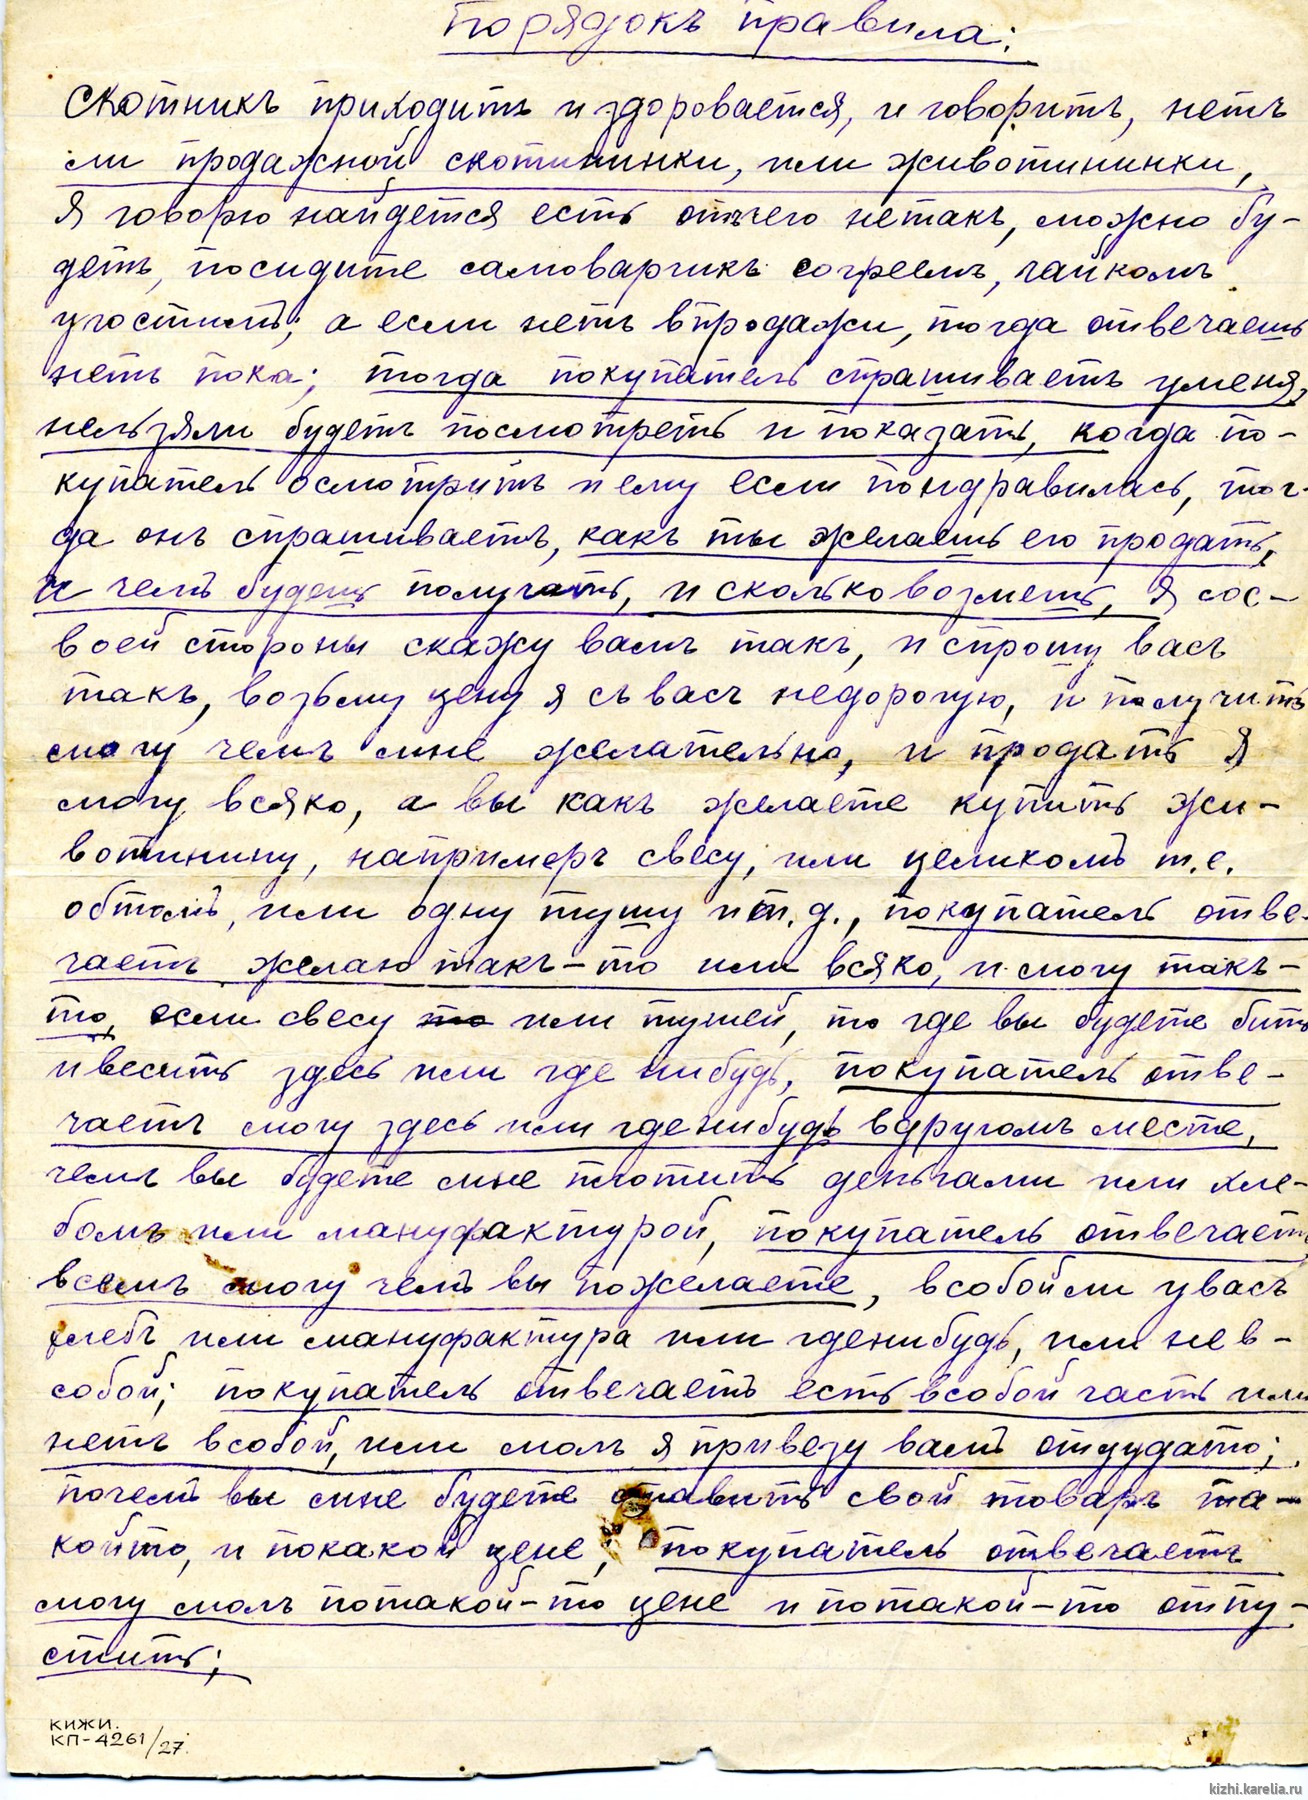 Порядокъ правила:
Скотникъ приходитъ и здоровается, и говоритъ, нетъ
ли продажной скотининки, или животининки,
Я говорю найдется есть отъчего нетакъ, можно бу-
детъ, посидите самоварчикъ согреемъ, чайкомъ
угостимъ; а если нетъ впродажи, тогда отвечаешь
нетъ пока; тогда покупатель спрашиваетъ уменя,
нельзяли будетъ посмотреть и показать, когда по-
купатель осмотритъ иему если пондравилась, тог-
да онъ спрашиваетъ, какъ ты желаешь его продать,
и чемъ будешь получать, и сколько возмешь, Я сос-
воей стороны скажу вамъ такъ, и спрошу васъ
такъ, возьму цену я съ васъ недорогую, и получить
смогу чемъ мне желательно, и продать Я
смогу всяко, а вы какъ желаете купить жи-
вотинину, напримеръ свесу, или целикомъ т.е.
обтомъ, или одну тушу ит.д., покупатель отве-
чаетъ желаю такъ-то или всяко, и смогу такъ-
то, если свесу то или тушей, то где вы будете бить
ивесить здесь или где нибудь, покупатель отве-
чаетъ смогу здесь или гденибудь вдругомъ месте,
чемъ вы будете мне плотить деньгами или хле-
бомъ или мануфактурой, покупатель отвечаетъ
всемъ смогу чемъ вы пожелаете, всобойли увасъ
хлебъ или мануфактура или гденибудь, или не в-
собой; покупатель отвечаетъ есть всобой часть или
нетъ всобой, или молъ я привезу вамъ оттудато;
почемъ вы мне будете ставить свой товаръ та-
който, и покакой цене; покупатель отвечаетъ
смогу молъ потакой-то цене и потакой-то отпу-
стить;
КИЖИ.
КП-4261/27.
kizhi.karelia.ru